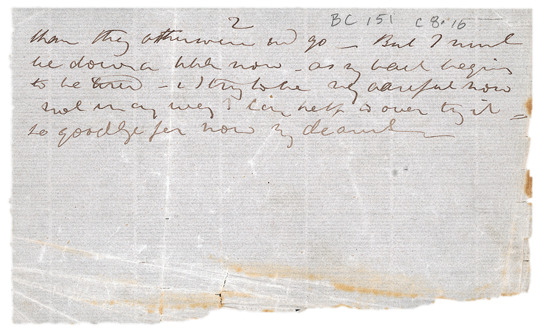 2
BC 151 C8.16
than they otherwise wd go — But I must
lie down a little now — as my back begins
to be tired — & I try to be very careful now
not in any way I can help to over try it =
so goodbye for now my dearest —